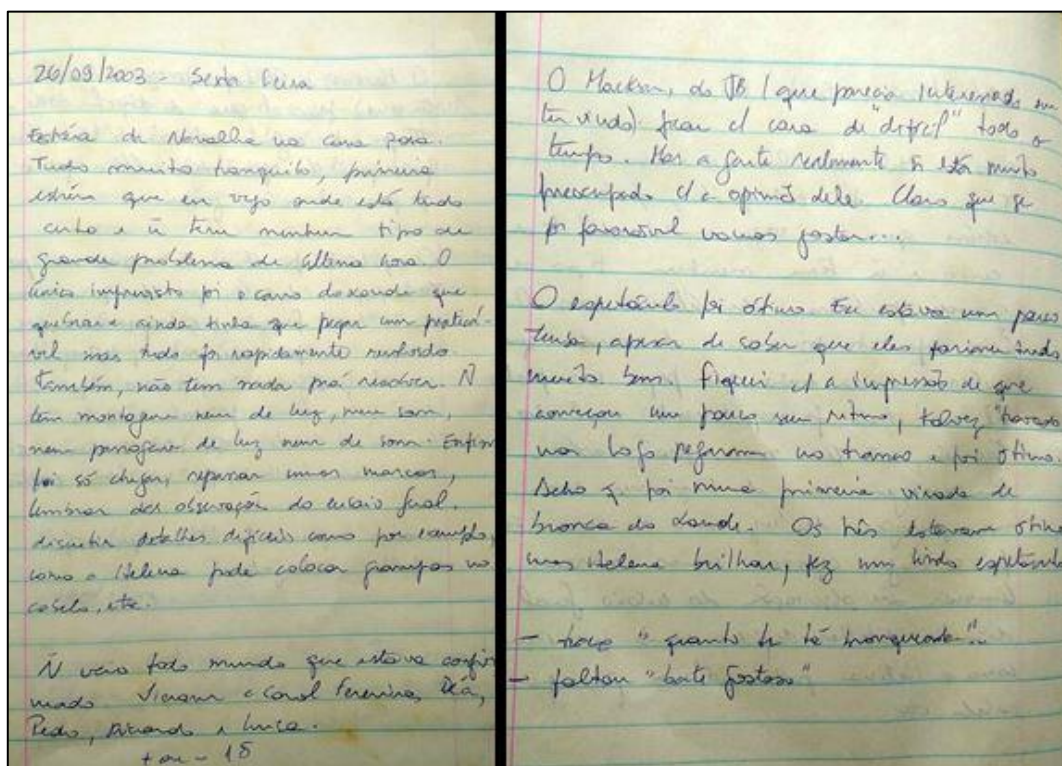 26/09/2003 - Sexta Feira
Estréia de Navalha na Carne Zona.
Tudo muito tranquilo, primeira
estréia que eu vejo onde está tudo
certo e ñ tem nenhum tipo de
grande problema de última hora. O
único imprevisto foi o carro do Xande que
quebrou e ainda tinha que pegar um praticá-
vel mas tudo foi rapidamente resolvido.
Também, não tem nada prá resolver. Ñ
tem montagem nem de luz, nem som,
nem passagem de luz nem de som. Enfim
foi só chegar, repassar umas marcas,
lembrar das observações do ensaio final,
discutir detalhes difíceis como por exemplo,
como a Helena pode colocar grampos no
cabelo, etc.
Ñ veio todo mundo que estava confir
mado. Vieram a Carol Ferreira, Déa,
Pedro, e Luca.
+ ou - 15
O Mackson, do JB (que parecia interessado em
ter vindo) ficou c/ cara de "difícil" todo o
tempo. Mas a gente realmente ñ está muito
preocupado c/ a opinião dele. Claro que se
for favorável vamos gostar...
O espetáculo foi ótimo. Eu estava um pouco
tensa, apesar de saber que eles fariam tudo
muito bem. Fiquei c/ a impressão de que
começou um pouco sem ritmo, talvez "travado"
mas logo pegaram no tranco e foi ótimo.
Acho q. foi numa primeira virada de
bronca do Xande. Os três estavam ótimos
mas Helena brilhou, fez um lindo espetáculo
- "quanto tá"..
- faltou "bate gostoso"